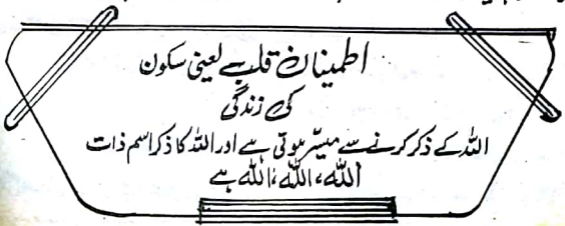 اطمینان قلب سے یعنی سکون
کی زندگی
اللہ کے ذکر کرنے سے میسّر ہوتی ہے اور اللہ کا ذکر اسم ذات
اللہ، اللہ، اللہ ہے